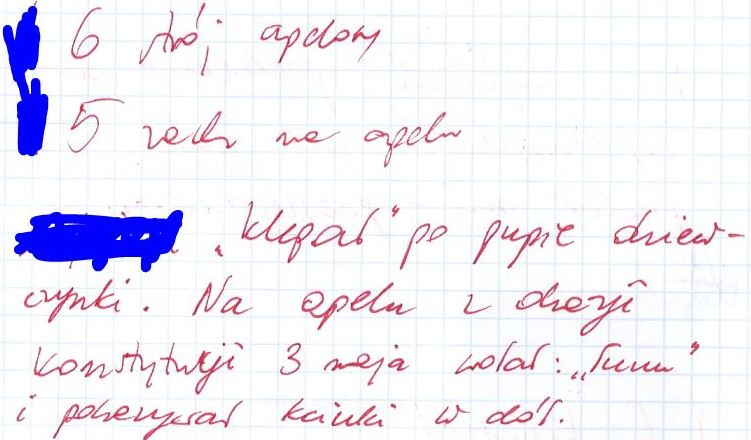 6 strój apelowy
5 zach na apelu
"klepał" po pupie dziew-
czynki. Na apelu z okazji
Konstytucji 3 maja wołał: „
i pokazywał kciuki w dół.